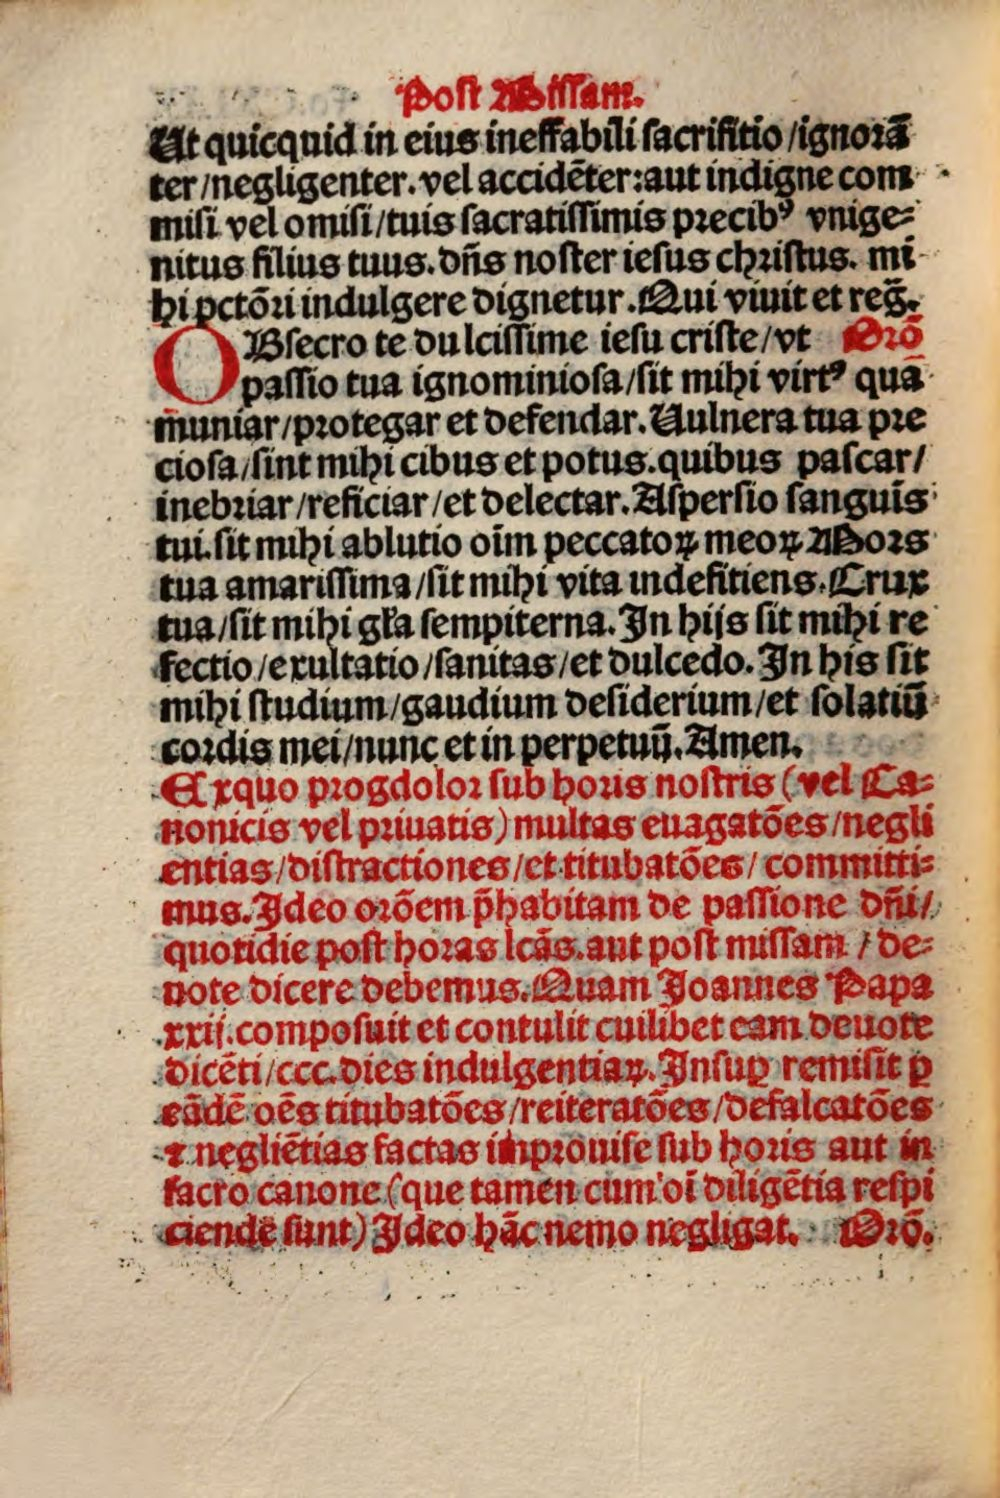 Post Missam.
Ut quicquid in eius ineffabili sacrifitio / ignorā
ter / negligenter. vel accidēter: aut indigne com
misi vel omisi / tuis sacratissimis precibꝰ vnige⸗
nitus filius tuus. dn̄s noster iesus christus. mi
hi pctōri indulgere dignetur. Qui viuit et reg̃.
OBsecro te dulcissime iesu criste / vt Orō
passio tua ignominiosa / sit mihi virtꝰ quā
muniar / protegar et defendar. Uulnera tua pre
ciosa / sint mihi cibus et potus. quibus pascar /
inebriar / reficiar / et delectar. Aspersio sanguīs
tui. sit mihi ablutio oīm peccatoꝝ meoꝝ Mors
tua amarissima / sit mihi vita indefitiens. Crux
tua / sit mihi gl̄a sempiterna. In hijs sit mihi re
fectio / exultatio / sanitas / et dulcedo. In his sit
mihi studium / gaudium desiderium / et solatiū
cordis mei / nunc et in perpetuū. Amen.
Exquo progdolor sub horis nostris (vel Ca⸗
nonicis vel priuatis) multas euagatōes / negli
entias / distractiones / et titubatōes / committi⸗
mus. Ideo orōem p̄habitam de passione dn̄i /
quotidie post horas lcās. aut post missam / de⸗
uote dicere debemus. Quam Joannes Papa
xxij. composuit et contulit cuilibet eam deuote
dicēti / ccc. dies indulgentiaꝝ. Insuꝑ remisit ꝑ
eādē oēs titubatōes / reiteratōes / defalcatōes
⁊ negliētias factas improuise sub horis aut in
sacro canone (que tamen cum oī diligētia respi
ciende sunt) Ideo hāc nemo negligat. Orō.